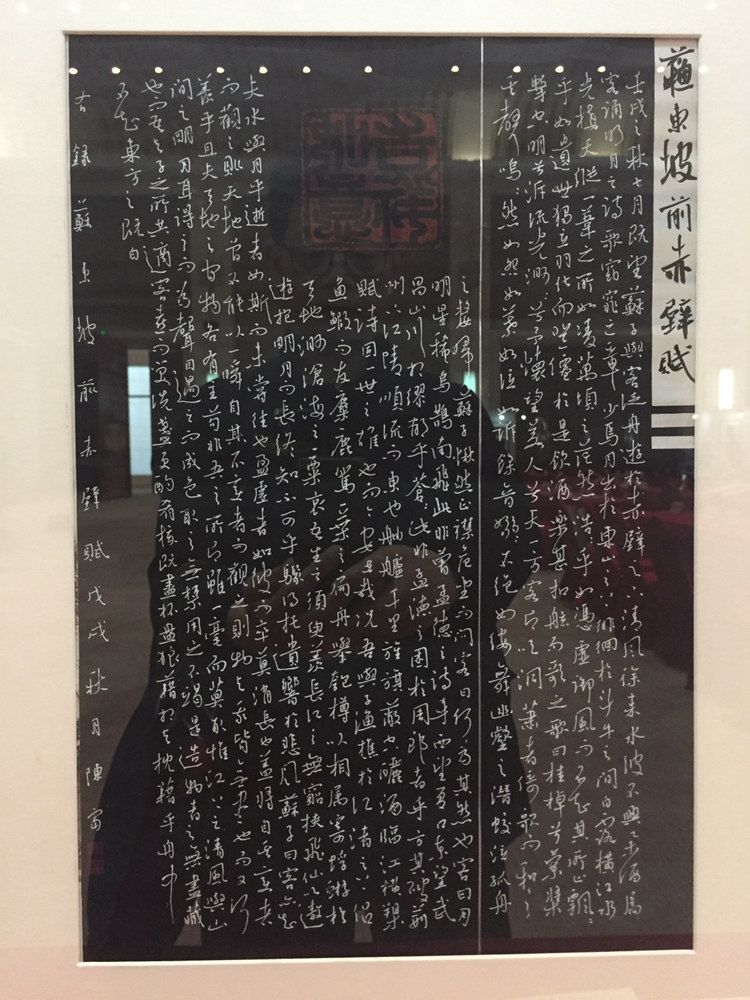 蘇東坡前赤壁賦
壬戌之秋七月既望蘇子與客泛舟遊於赤壁之下清風徐來水波不興舉酒属
客誦明月之詩歌窈窕之章少焉月出於東山之上徘徊於斗牛之間白露橫江水
光接天縱一葦之所如凌萬頃之茫然浩浩乎如憑虛御風而不知其所止飄飄
乎如遺世獨立羽化而登僊於是飲酒樂甚扣舷而歌之歌曰桂棹兮蘭槳
擊空明兮泝流光渺渺兮予懷望美人兮天一方客有吹洞蕭者倚歌而和之
其聲嗚嗚然如怨如慕如泣如訴餘音嫋嫋不絕如縷舞幽壑之潛蛟泣孤舟
之嫠婦 蘇子愀然正襟危坐而問客曰何為其然也客曰月
明星稀烏鵲南飛此非曹孟德之詩乎西望夏口東望武
昌山川相繆鬱乎蒼蒼此非孟德之困於周郎者乎方其破荊
州下江陵順流而東也舳艫千里旌旗蔽空釃酒臨江橫槊
賦詩固一世之雄也而今安在哉況吾與子漁樵於江渚之上侶
魚鰕而友麋鹿駕一葉之扁舟舉匏樽以相屬寄蜉蝣於
天地渺滄海之一粟哀吾生之須臾羨長江之無窮挾飛仙以遨
遊抱明月而長終知不可乎驟得托遺響於悲風蘇子曰客亦知
夫水與月乎逝者如斯而未嘗往也盈虛者如彼而卒莫消長也蓋將自其變者
而觀之則天地曾不能以一瞬自其不變者而觀之則物與我皆無盡也而又何
羨乎且夫天地之間物各有主苟非吾之所有雖一毫而莫取惟江上之清風與山
間之明月耳得之而為聲目遇之而成色取之無禁用之不竭是造物者之無盡藏
也而吾與子之所共適客喜而笑洗盞更酌肴核既盡杯盤狼藉相與枕藉乎舟中
不知東方之既白
右錄蘇東坡前赤壁賦戊戌秋月陳富